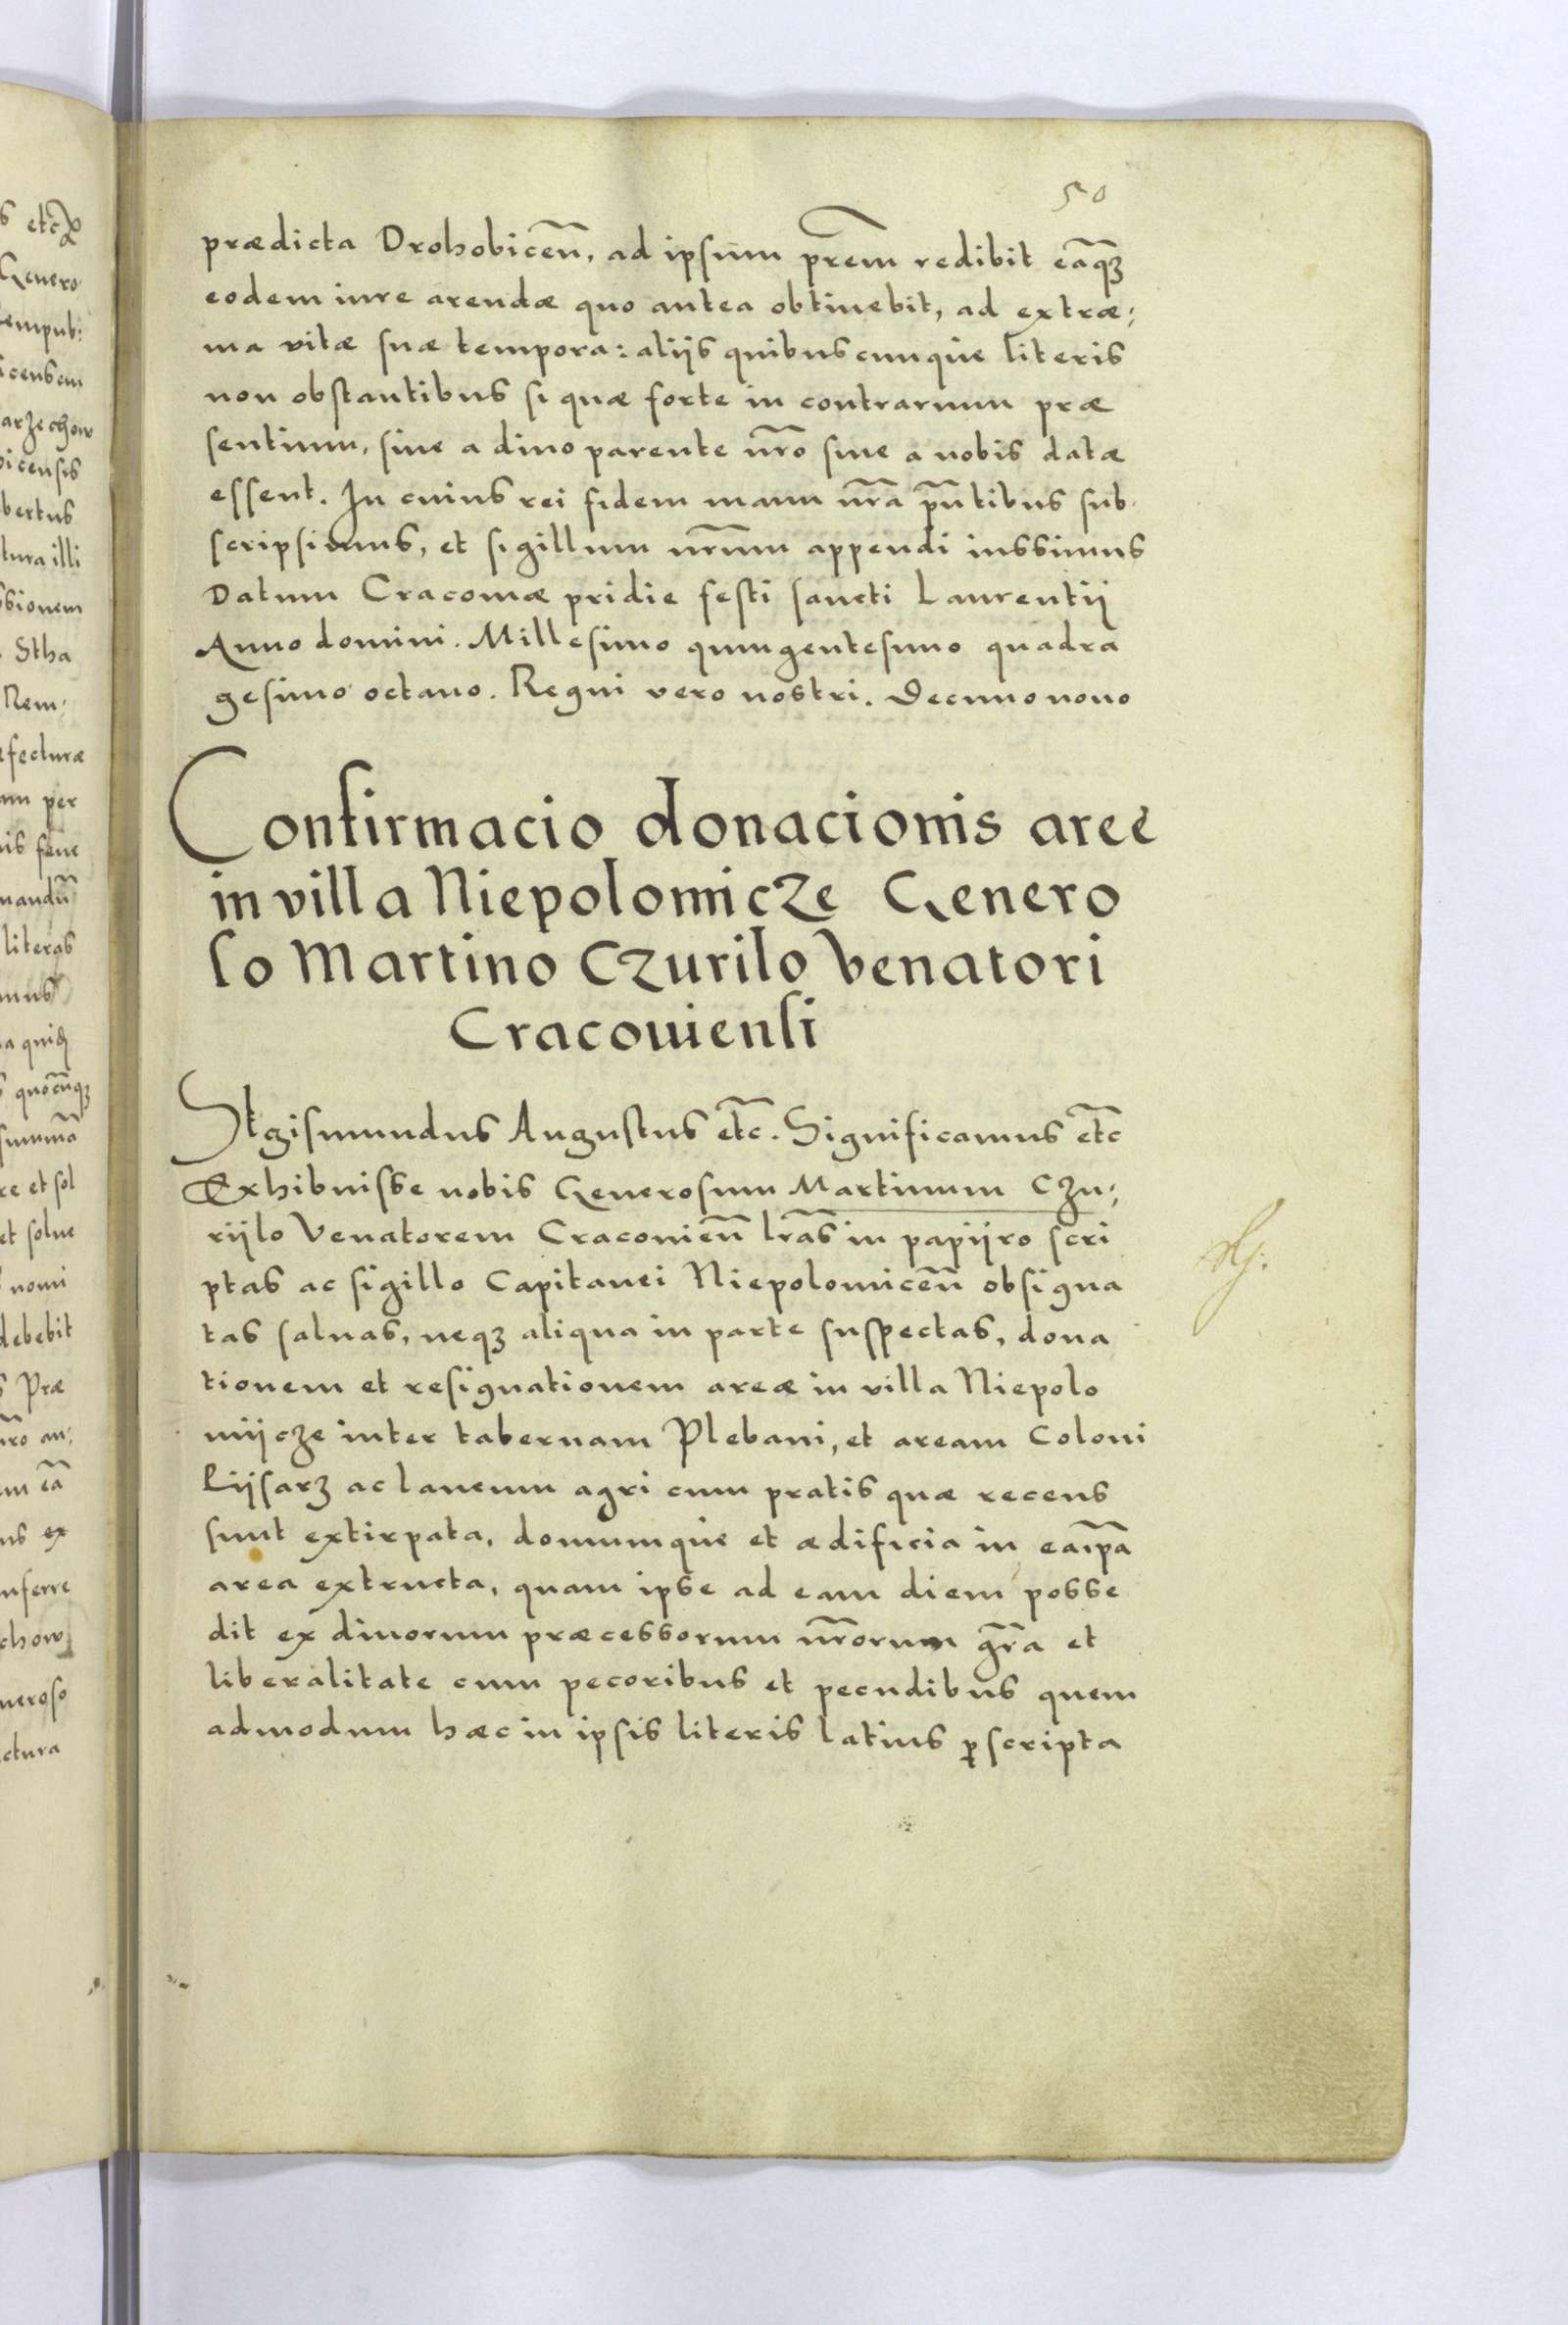 50
prædicta Drohobiceñ, ad ipsum pr̃em redibit eãqꝫ
eodem iure arendæ quo antea obtinebit, ad extræ;
ma vitæ suæ tempora: aliis quibuscunque literis
non obstantibus si quæ forte in contrarium præ
sentium, siue a diuo parente nr̃o siue a nobis datæ
essent. In cuius rei fidem manu nr̃a pñtibus sub
scripsimus, et sigillum nr̃um appendi iussimus
Datum Cracouiæ pridie festi sancti Laurentij
Anno domini. Millesimo quingentesimo quadra
gesimo octauo. Regni vero nostri. Decimo nono
Confirmacio donacionis aree
in villa Niepolomicze Genero
so Martino Czurilo Venatori
Cracouiensi
Sigismundus Augustus etc̃. Significamus etc̃
Exhibuisse nobis Generosum Martinum Czu;
rijlo Venatorem Cracouieñ lr̃as in papijro scri
ptas ac sigillo Capitanei Niepolomiceñ obsigna
tas saluas, neqꝫ aliqua in parte suspectas, dona
tionem et resignationem areæ in villa Niepolo
mijcze inter tabernam Plebani, et aream Coloni
Lijsarz ac laneum agri cum pratis quæ recens
sunt extirpata, domumque et ædificia in eaip̃a
area extructa, quam ipse ad eam diem posse
dit ex diuorum præcessorum nr̃orum gr̃a et
liberalitate cum pecoribus et pecudibus quem
admodum hæc in ipsis literis latius ꝑscripta